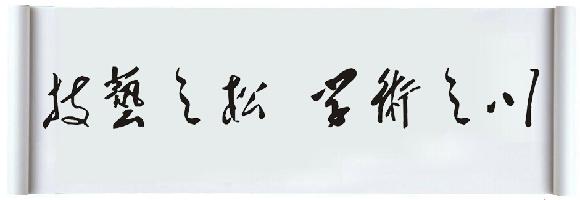 技藝之松 学術之川